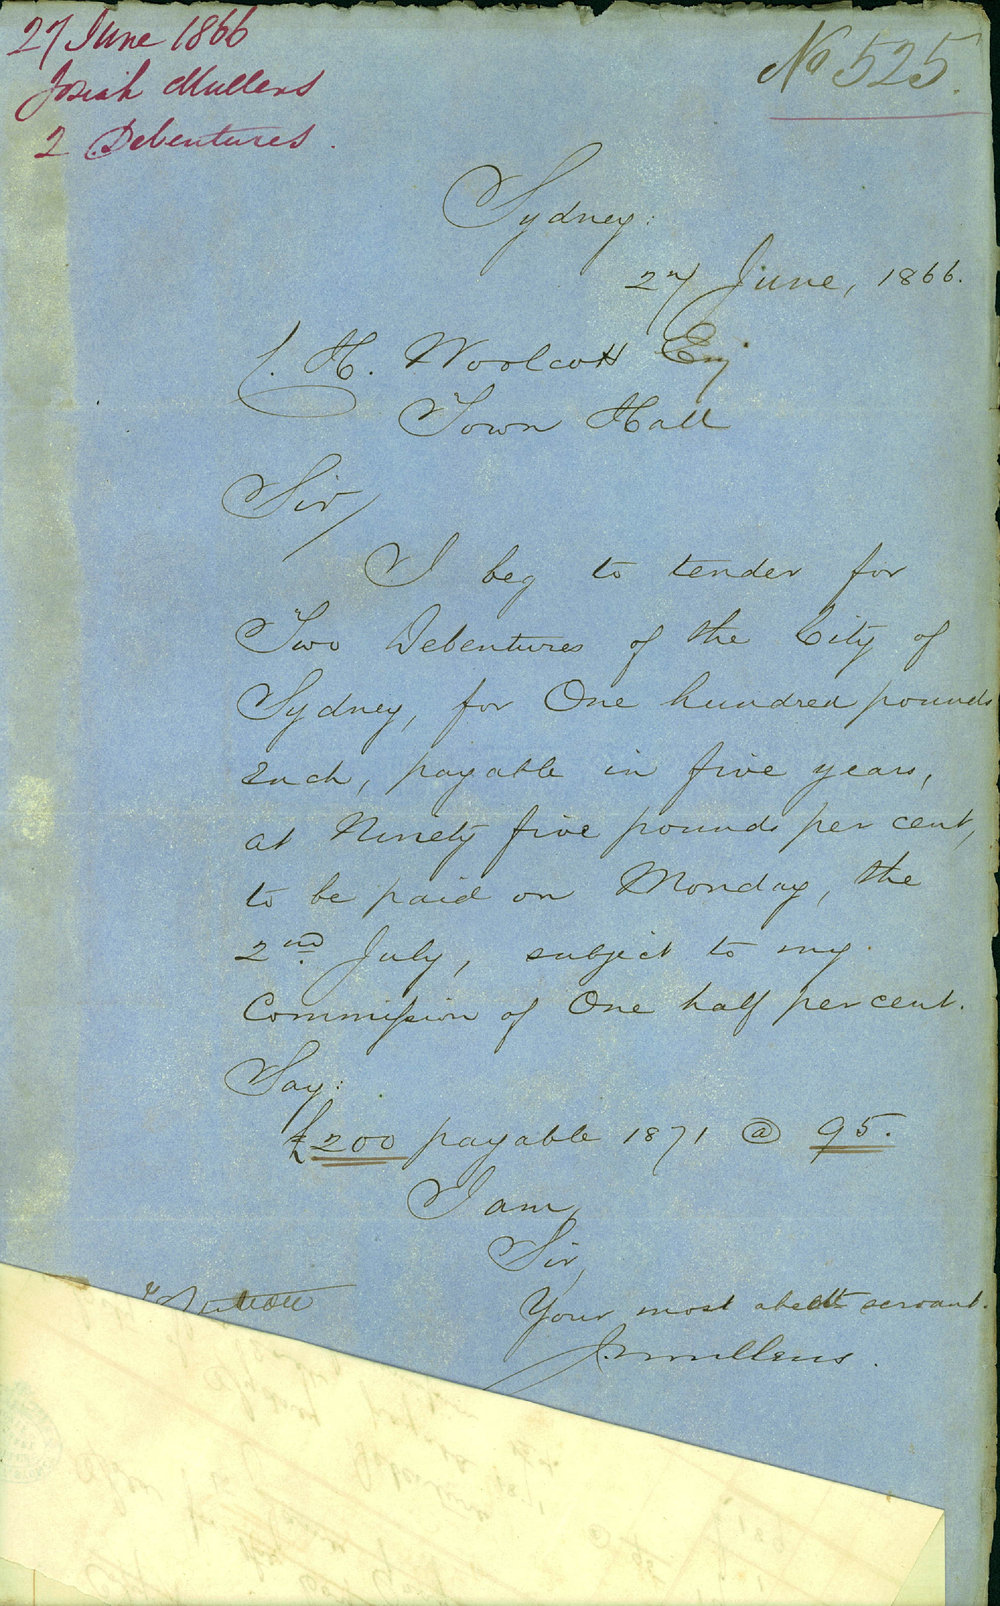 27 June 1866
Josiah Mullens
2 Debentures.
No 525.
Sydney:
27 June, 1866.
C. H. Woolcott Esq
Town Hall
Sir/
I beg to tender for
Two Debentures of the City of
Sydney, for One hundred pounds
each, payable in five years,
at Ninety five pounds per cent,
to be paid on Monday, the
2nd July, subject to my
Commission of One half per cent.
Say:
£200 payable 1871 @ 95.
I am,
Sir,
Your most obedt servant.
J Mullens.